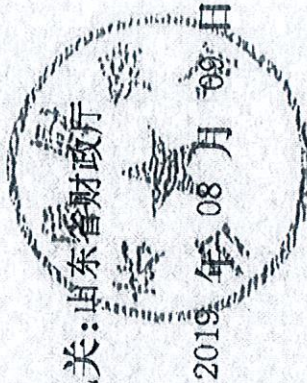 关：山东省财政厅
2019 年 08 月 09 日